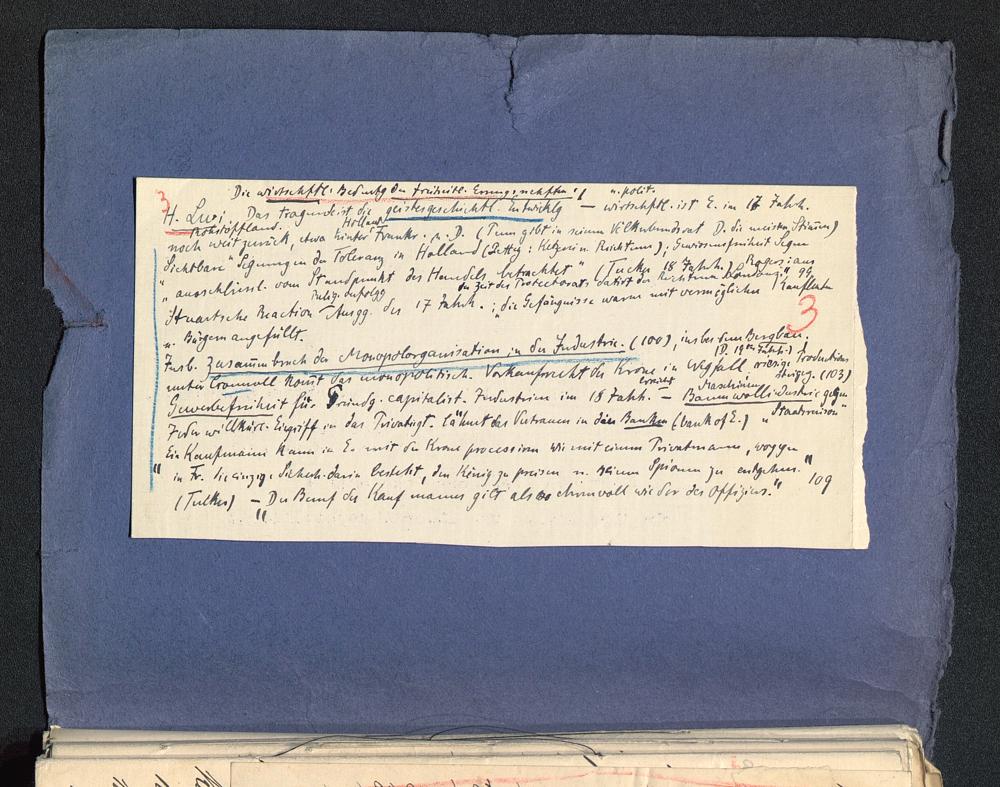 Die wirtschftl. Bedeutg der freiheitl. Errungenschften!
u. polit.
3
H. Levi, Das Tragende ist die geistesgeschichtl. Entwicklg — wirtschftl. ist E. im 17 Jahrh.
Rohstoffland.
Holland
noch weit zurück, etwa hinter Frankr. u. D. (Penn gibt in seinem Völkerbundsrat D. die meisten Stimmen)
Sichtbare" Segnungen der Toleranz in Holland (Petty: Ketzerei u. Reichtum); Gewissensfreiheit
" ausschliessl. vom Standpunkt des Handels betrachtet" (Tucker 18 Jahrh.) Rogers: aus
der Zeit des Protectorats datirt der Reichtum Londons" 99,
Stuartsche Reaction Ausgg. des 17 Jahrh.: „die Gefängnisse waren mit vermöglichen Kaufleuten
relig. Verfolgg
3
u. Bürgern angefüllt.
Insb. Zusammbruch der Monopolorganisation in der Industrie. (100), insb. in dem Bergbau.
unter Cromwell Kampf das monopolitisch. Vorkaufsrecht der Krone in Wegfall
riesige Productions
steigrg. (103)
Gewerbefreiheit für Gründg. capitalist. Industrien im 18 Jahrh. — Baumwollindustrie gegen
erreicht
Maschinen
Jeder willkürl. Eingriff in das Privateigt. lähmt das Vertrauen in die Banken (Bank of E.)
„Staatsraison"
Ein Kaufmann kann in E. mit der Krone processiren wie mit einem Privatmann, woggen
" in Fr. die einzige Sicherh. darin besteht, den König zu preisen u. seinen Spionen zu entgehen." 109
(Tucker) — „Der Beruf des Kaufmanns gilt als so ehrenvoll wie der des Offiziers."